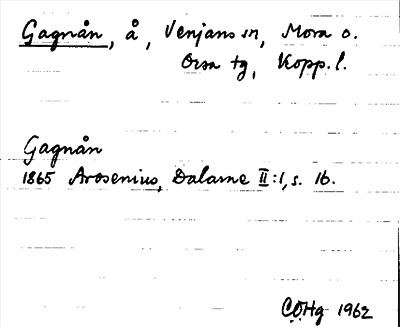 Gagnån, å, Venjans sn, Mora o.
Orsa tg, Kopp. l.
Gagnån
1865 Arosenius, Dalarne II:1, s. 16.
CÖHg 1962